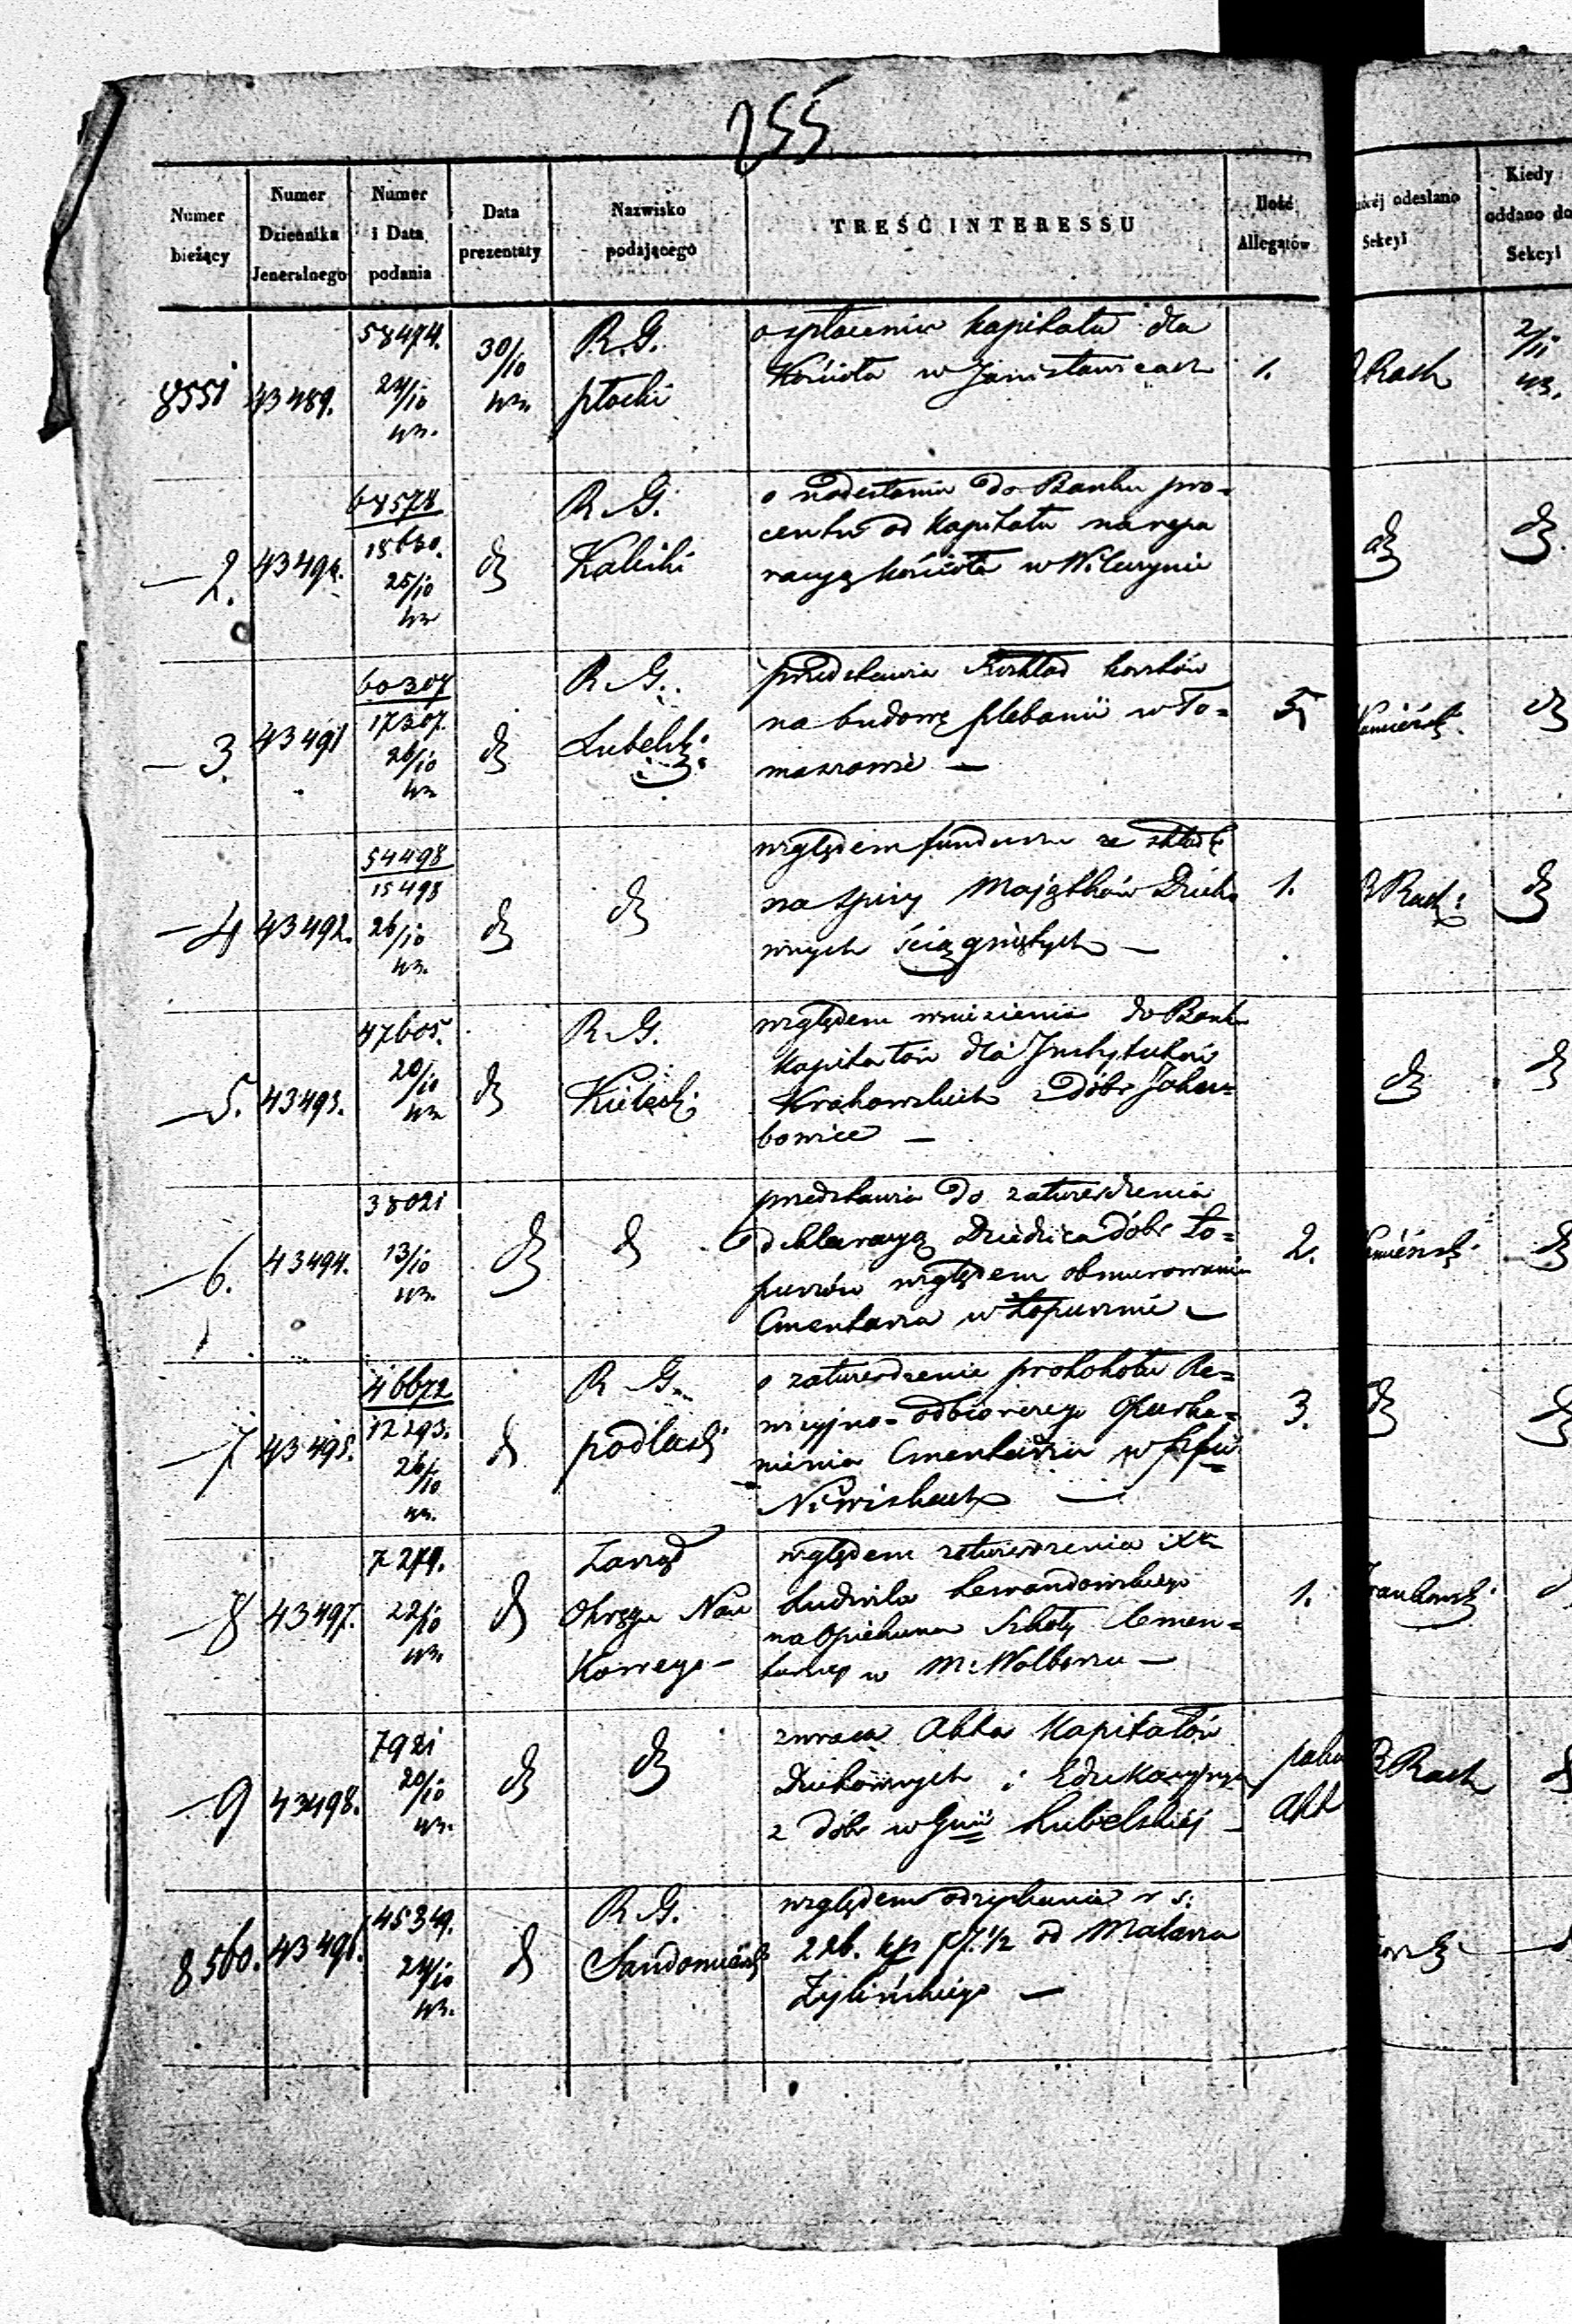 255
Numer bieżący
Numer Dziennika Jeneralnego
Numer i Data podania
Data prezentaty
Nazwisko podającego
TREŚĆ INTERESSU
Ilość Allegatów
odesłano Sekcyi
Kiedy oddano do Sekcyi
8551 43489. 58474. 24/10 43. 30/10 43. R. G. płocki
o spłaceniu kapitału dla
Kościoła w Janisławicach
1. Rach 2/11 43.
2. 43490. 68578 15630. 25/10 43 d R. G. Kaliski
o nadesłaniu do Banku pro=
centu od kapitału na repa
racyą kościoła w Wilczynie
d d
3. 43491 60307 17307. 26/10 43 d R. G. Lubelski
przedstawia Rozkład kosztów
na budowę plebanii w To=
maszowie —
5 Kamieńsk d
4 43492. 54498 15498 26/10 43. d d
względem funduszu ze składki
na spisy Majątków Ducho
wnych ściągniętych —
1. R Rach: d
5. 43493. 47605. 20/10 43 d R. G. Kielecki
względem wniesienia do Banku
Kapitałów dla Instytutów
Krakowskich z dóbr Jaku=
bowice —
d d
6. 43494. 38021 13/10 43. d d
przedstawia do zatwierdzenia
deklaracyą Dziedzica dóbr Ło=
puszno względem obmurowania
Cmentarza w Łopusznie —
2. Kamieńsk d
7 43495. 46672 12293. 26/10 43. d R. G. podlaski
o zatwierdzenie protokołu Re=
wizyjno-odbiorczego
Cmentarza w
Niwiskach —
3. d d
8 43497. 7279. 22/10 43. d Zarząd Okręgu Nau Kowego —
względem zatwierdzenia
Ludwika Lewandowskiego
na Opiekuna Szkoły Elemen=
tarnej w M. Wolborzu —
1. d
9 43498. 7921 20/10 43. d d
zwraca Akta Kapitałów
Duchownych i Edukacyjnych
z dóbr w Gunii Lubelskiej —
Akt R Rach d
8560. 43496. 45349. 24/10 43. d R. G. Sandomierski
względem odzyskania r s.
22b. kp 57.1/2 od Malarza
Żylińskiego —